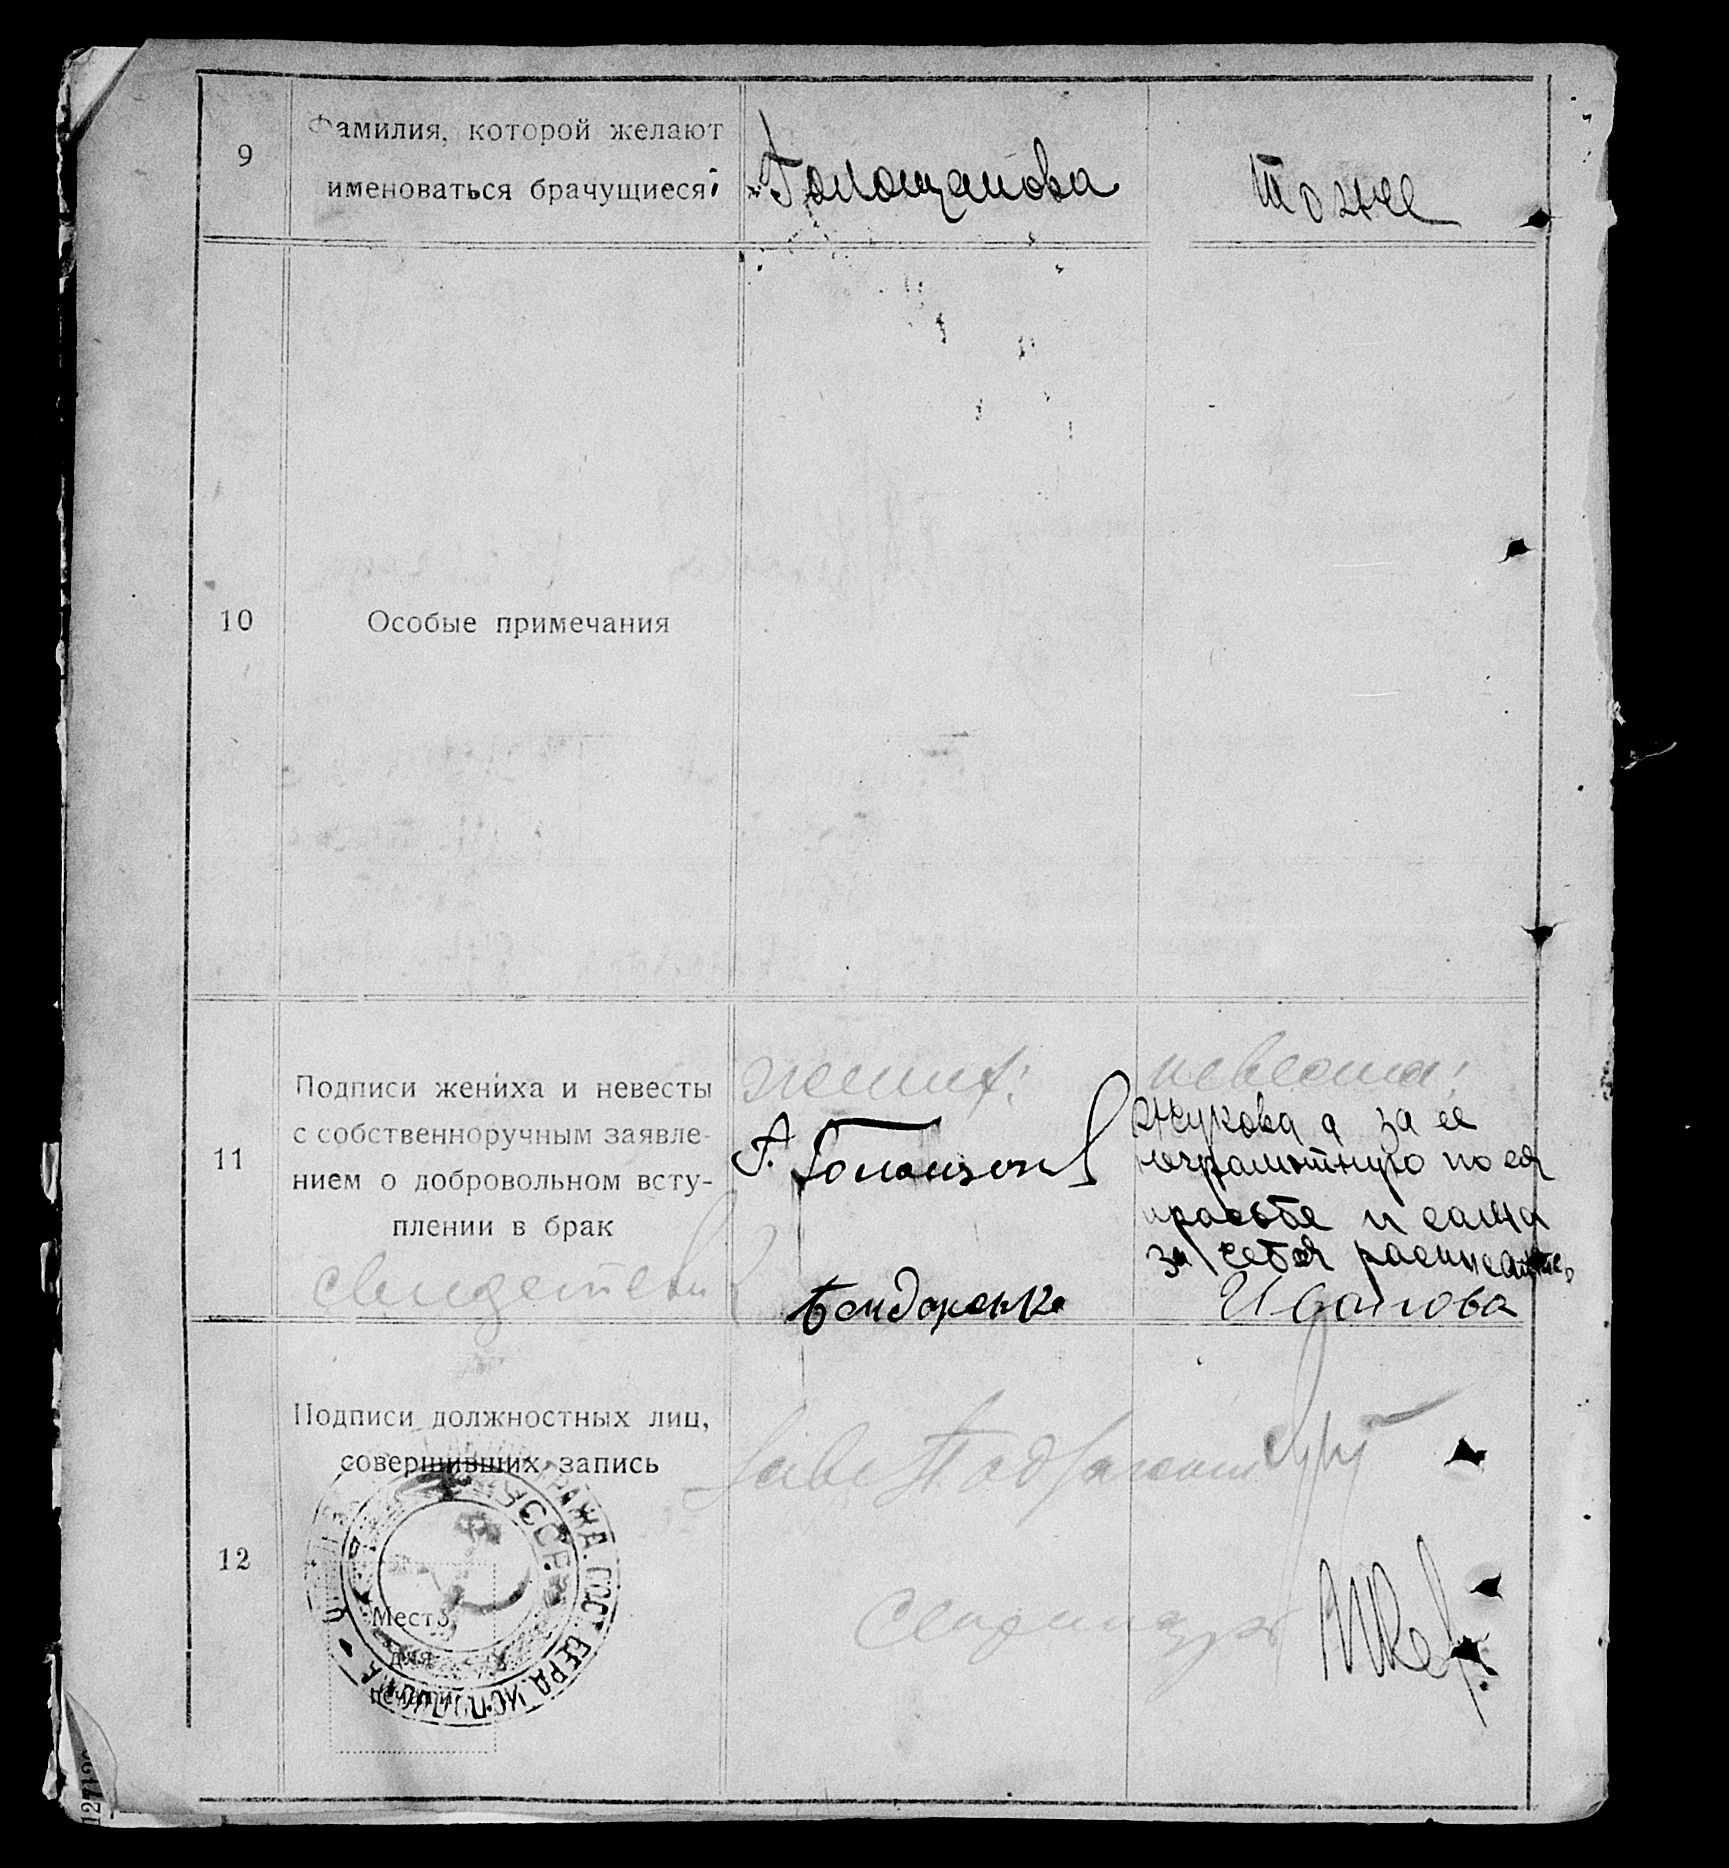 9
Фамилия, которой желают
именоваться брачущиеся
Голощапова
тоже
10
Особые примечания
11
Подписи жениха и невесты
с собственноручным заявле-
нием о добровольном всту-
плении в брак
свидетели
жених:
Бондаренко
невеста:
Жукова а за ее
неграмотную по ея
просьбе и
за себя
Иванова
12
Подписи должностных лиц,
совершивших запись
УССР
Место
для
печати
Зав.